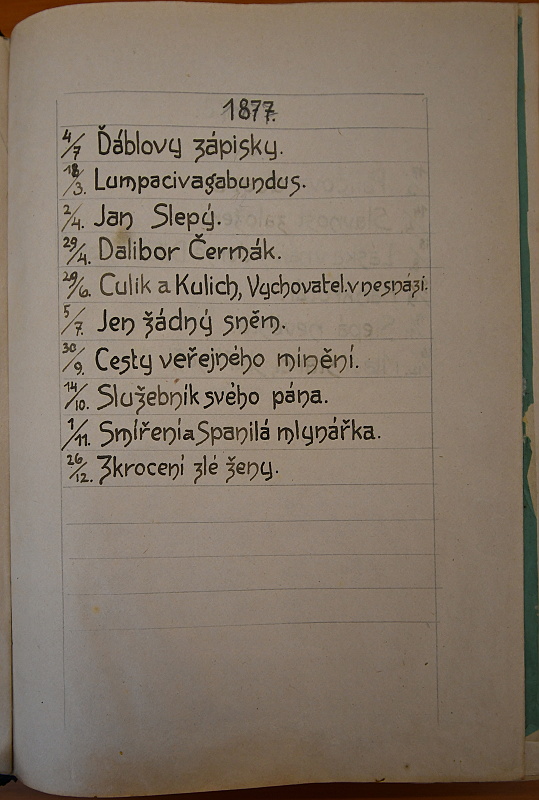 1877.
4/7 Ďáblovy zápisky.
18/3. Lumpacivagabundus.
2/4. Jan Slepý.
29/4. Dalibor Čermák.
29/6. Culík a Kulich, Vychovatel.v nesnázi.
5/7. Jen žádný sněm.
30/9. Cesty veřejného mínění.
14/10. Služebník svého pána.
1/11. Smíření a Spanilá mlynářka.
26/12. Zkrocení zlé ženy.